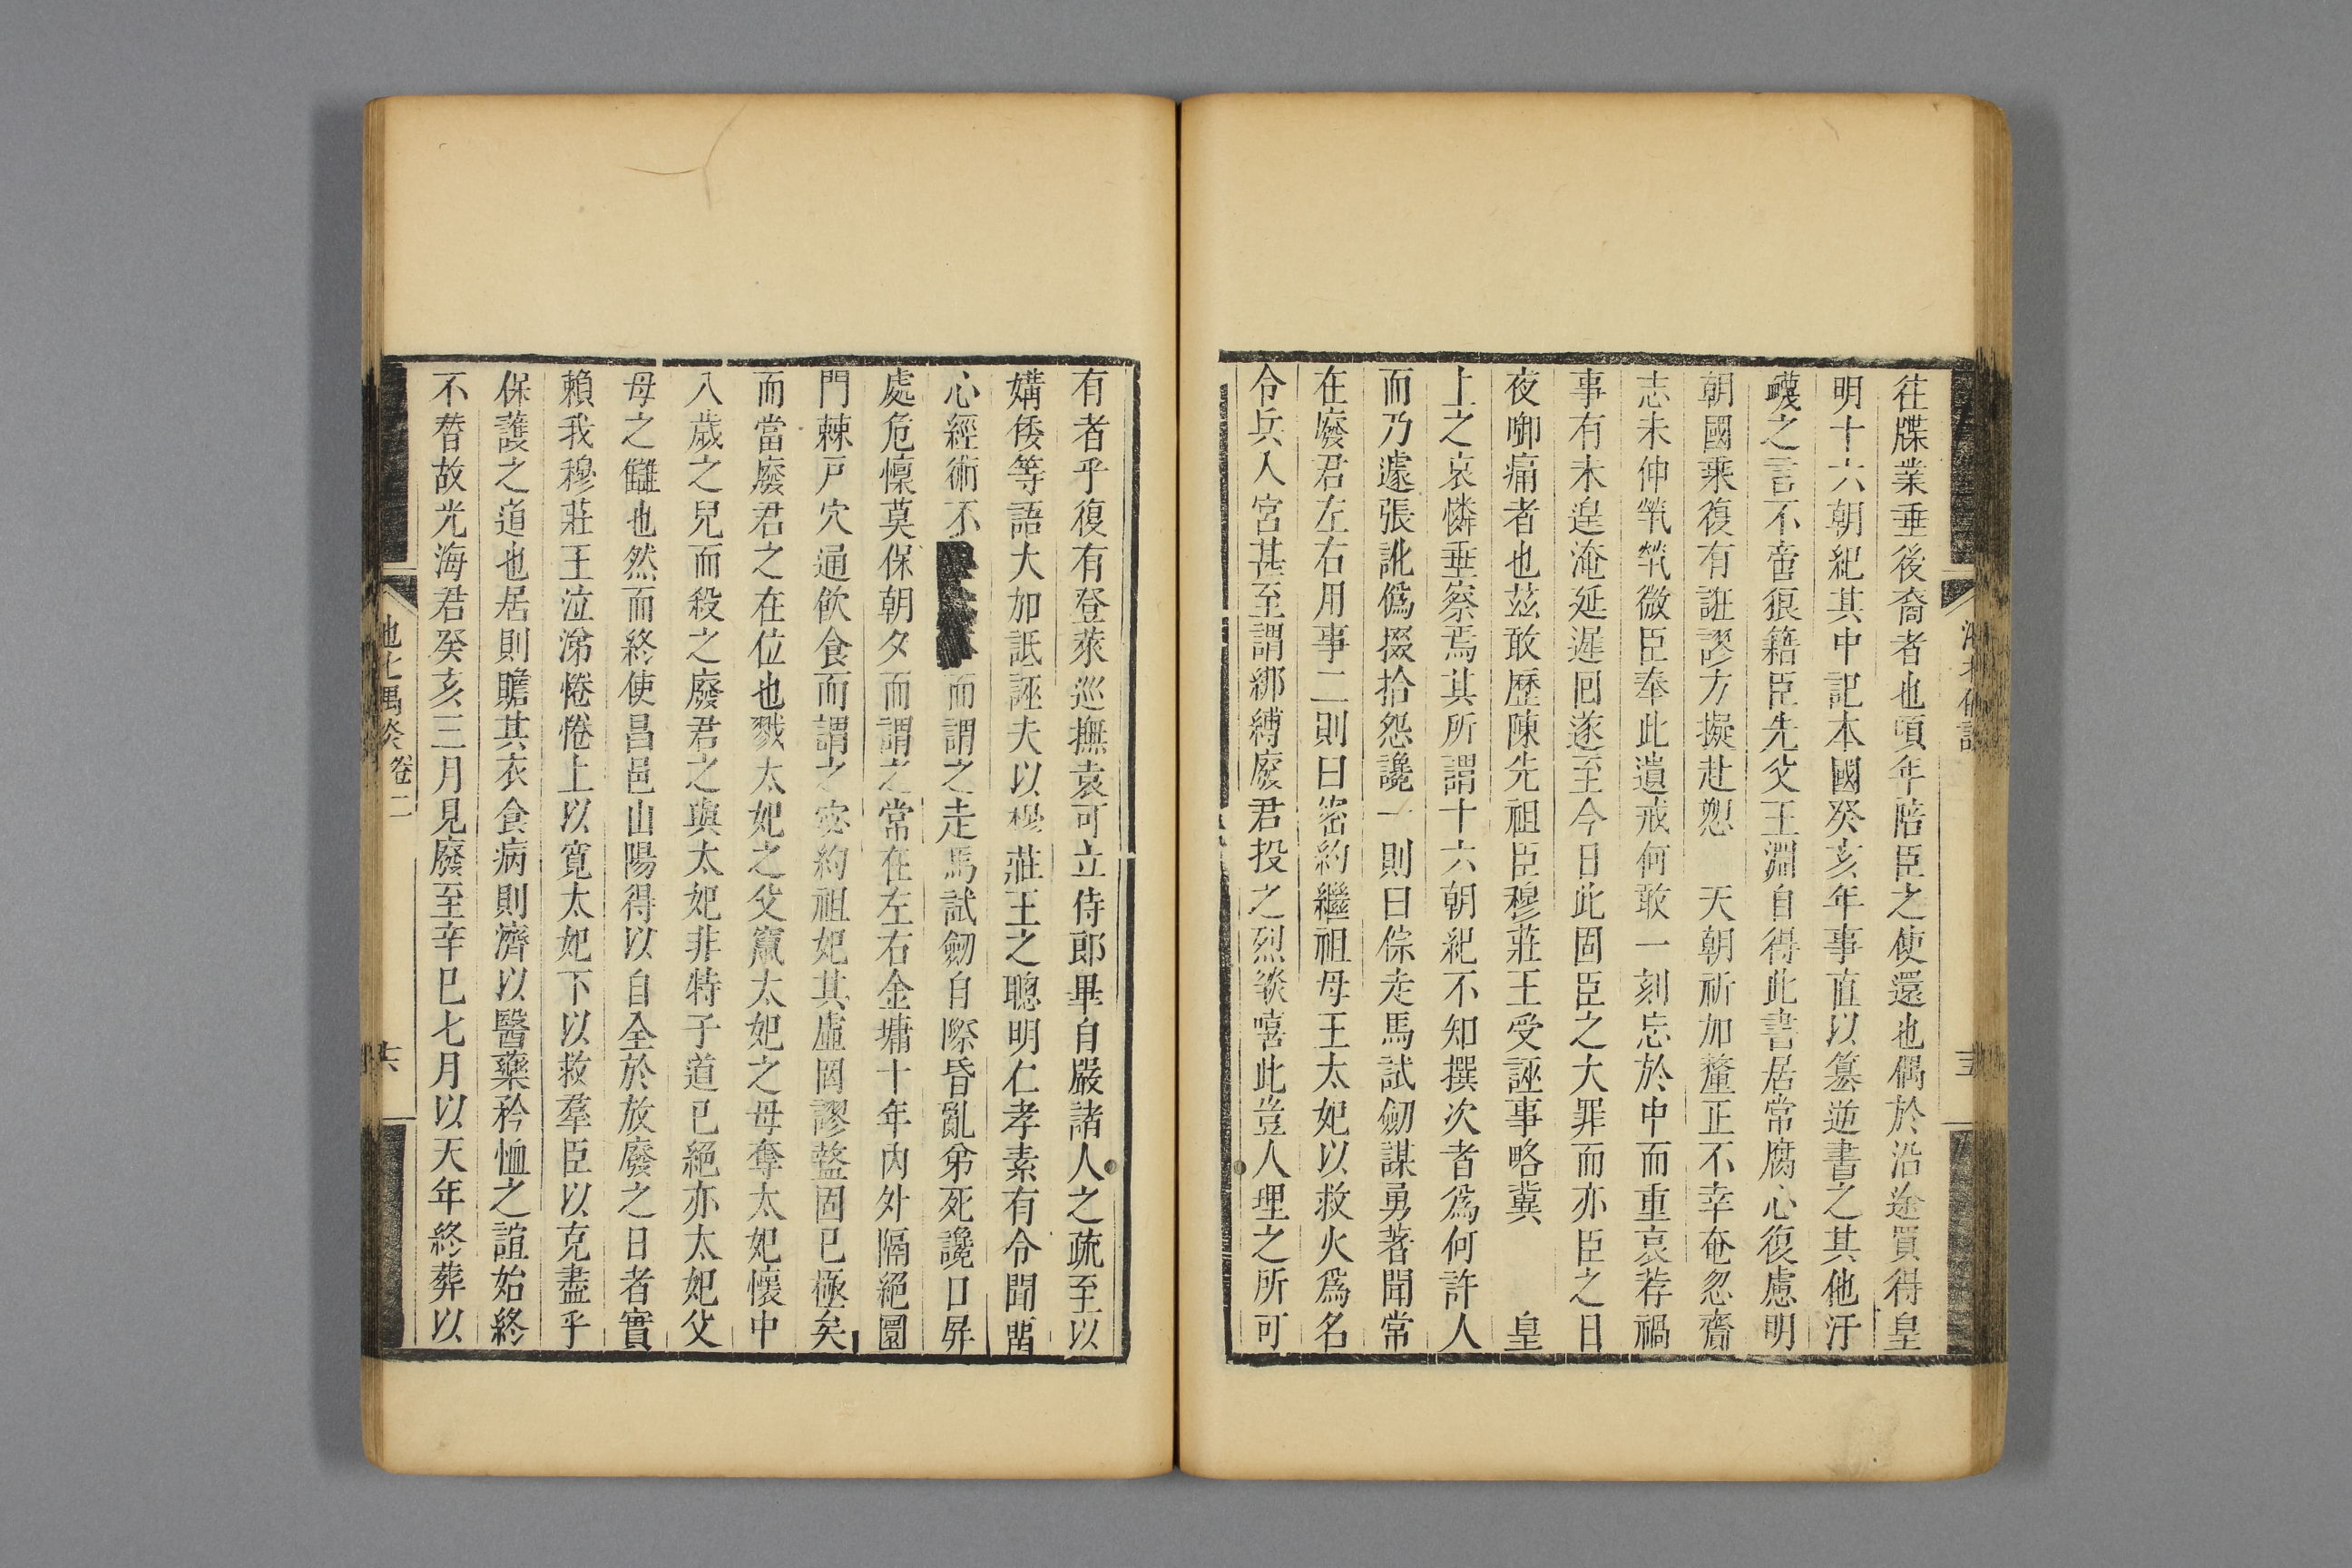 往牒業垂後裔者也頃年陪臣之使還也偶於沿途買得皇
明十六朝紀其中記本國癸亥年事直以篡逆書之其他汙
衊之言不啻狼籍臣先父王淵自得此書居常腐心復慮明
朝國乘復有誑謬方擬赴愬　天朝祈加釐正不幸奄忽齎
志未伸煢煢微臣奉此遺戒何敢一刻忘於中而重哀荐禍
事有未遑淹延遲回遂至今日此固臣之大罪而亦臣之日
夜啣痛者也茲敢歷陳先祖臣穆莊王受誣事略冀　皇
上之哀憐垂察焉其所謂十六朝紀不知撰次者爲何許人
而乃遽張訛僞掇拾怨讒一則曰倧走馬試劒謀勇著聞常
在廢君左右用事二則曰密約繼祖母王太妃以救火爲名
令兵入宮甚至謂綁縛廢君投之烈燄嘻此豈人理之所可
有者乎復有登萊巡撫袁可立侍郎畢自嚴諸人之疏至以
媾倭等語大加詆誣夫以穆莊王之聰明仁孝素有令聞留
心經術不而謂之走馬試劒自際昏亂弟死讒口屏
處危懍莫保朝夕而謂之常在左右金墉十年內外隔絕圜
門棘戶穴通飮食而謂之密約祖妃其虛罔謬盭固已極矣
而當廢君之在位也戮太妃之父竄太妃之母奪太妃懷中
八歲之兒而殺之廢君之與太妃非特子道已絕亦太妃父
母之讎也然而終使昌邑山陽得以自全於放廢之日者實
賴我穆莊王泣涕惓惓上以寬太妃下以救羣臣以克盡乎
保護之道也居則贍其衣食病則濟以醫藥矜恤之誼始終
不替故光海君癸亥三月見廢至辛巳七月以天年終葬以
池北偶談　卷二